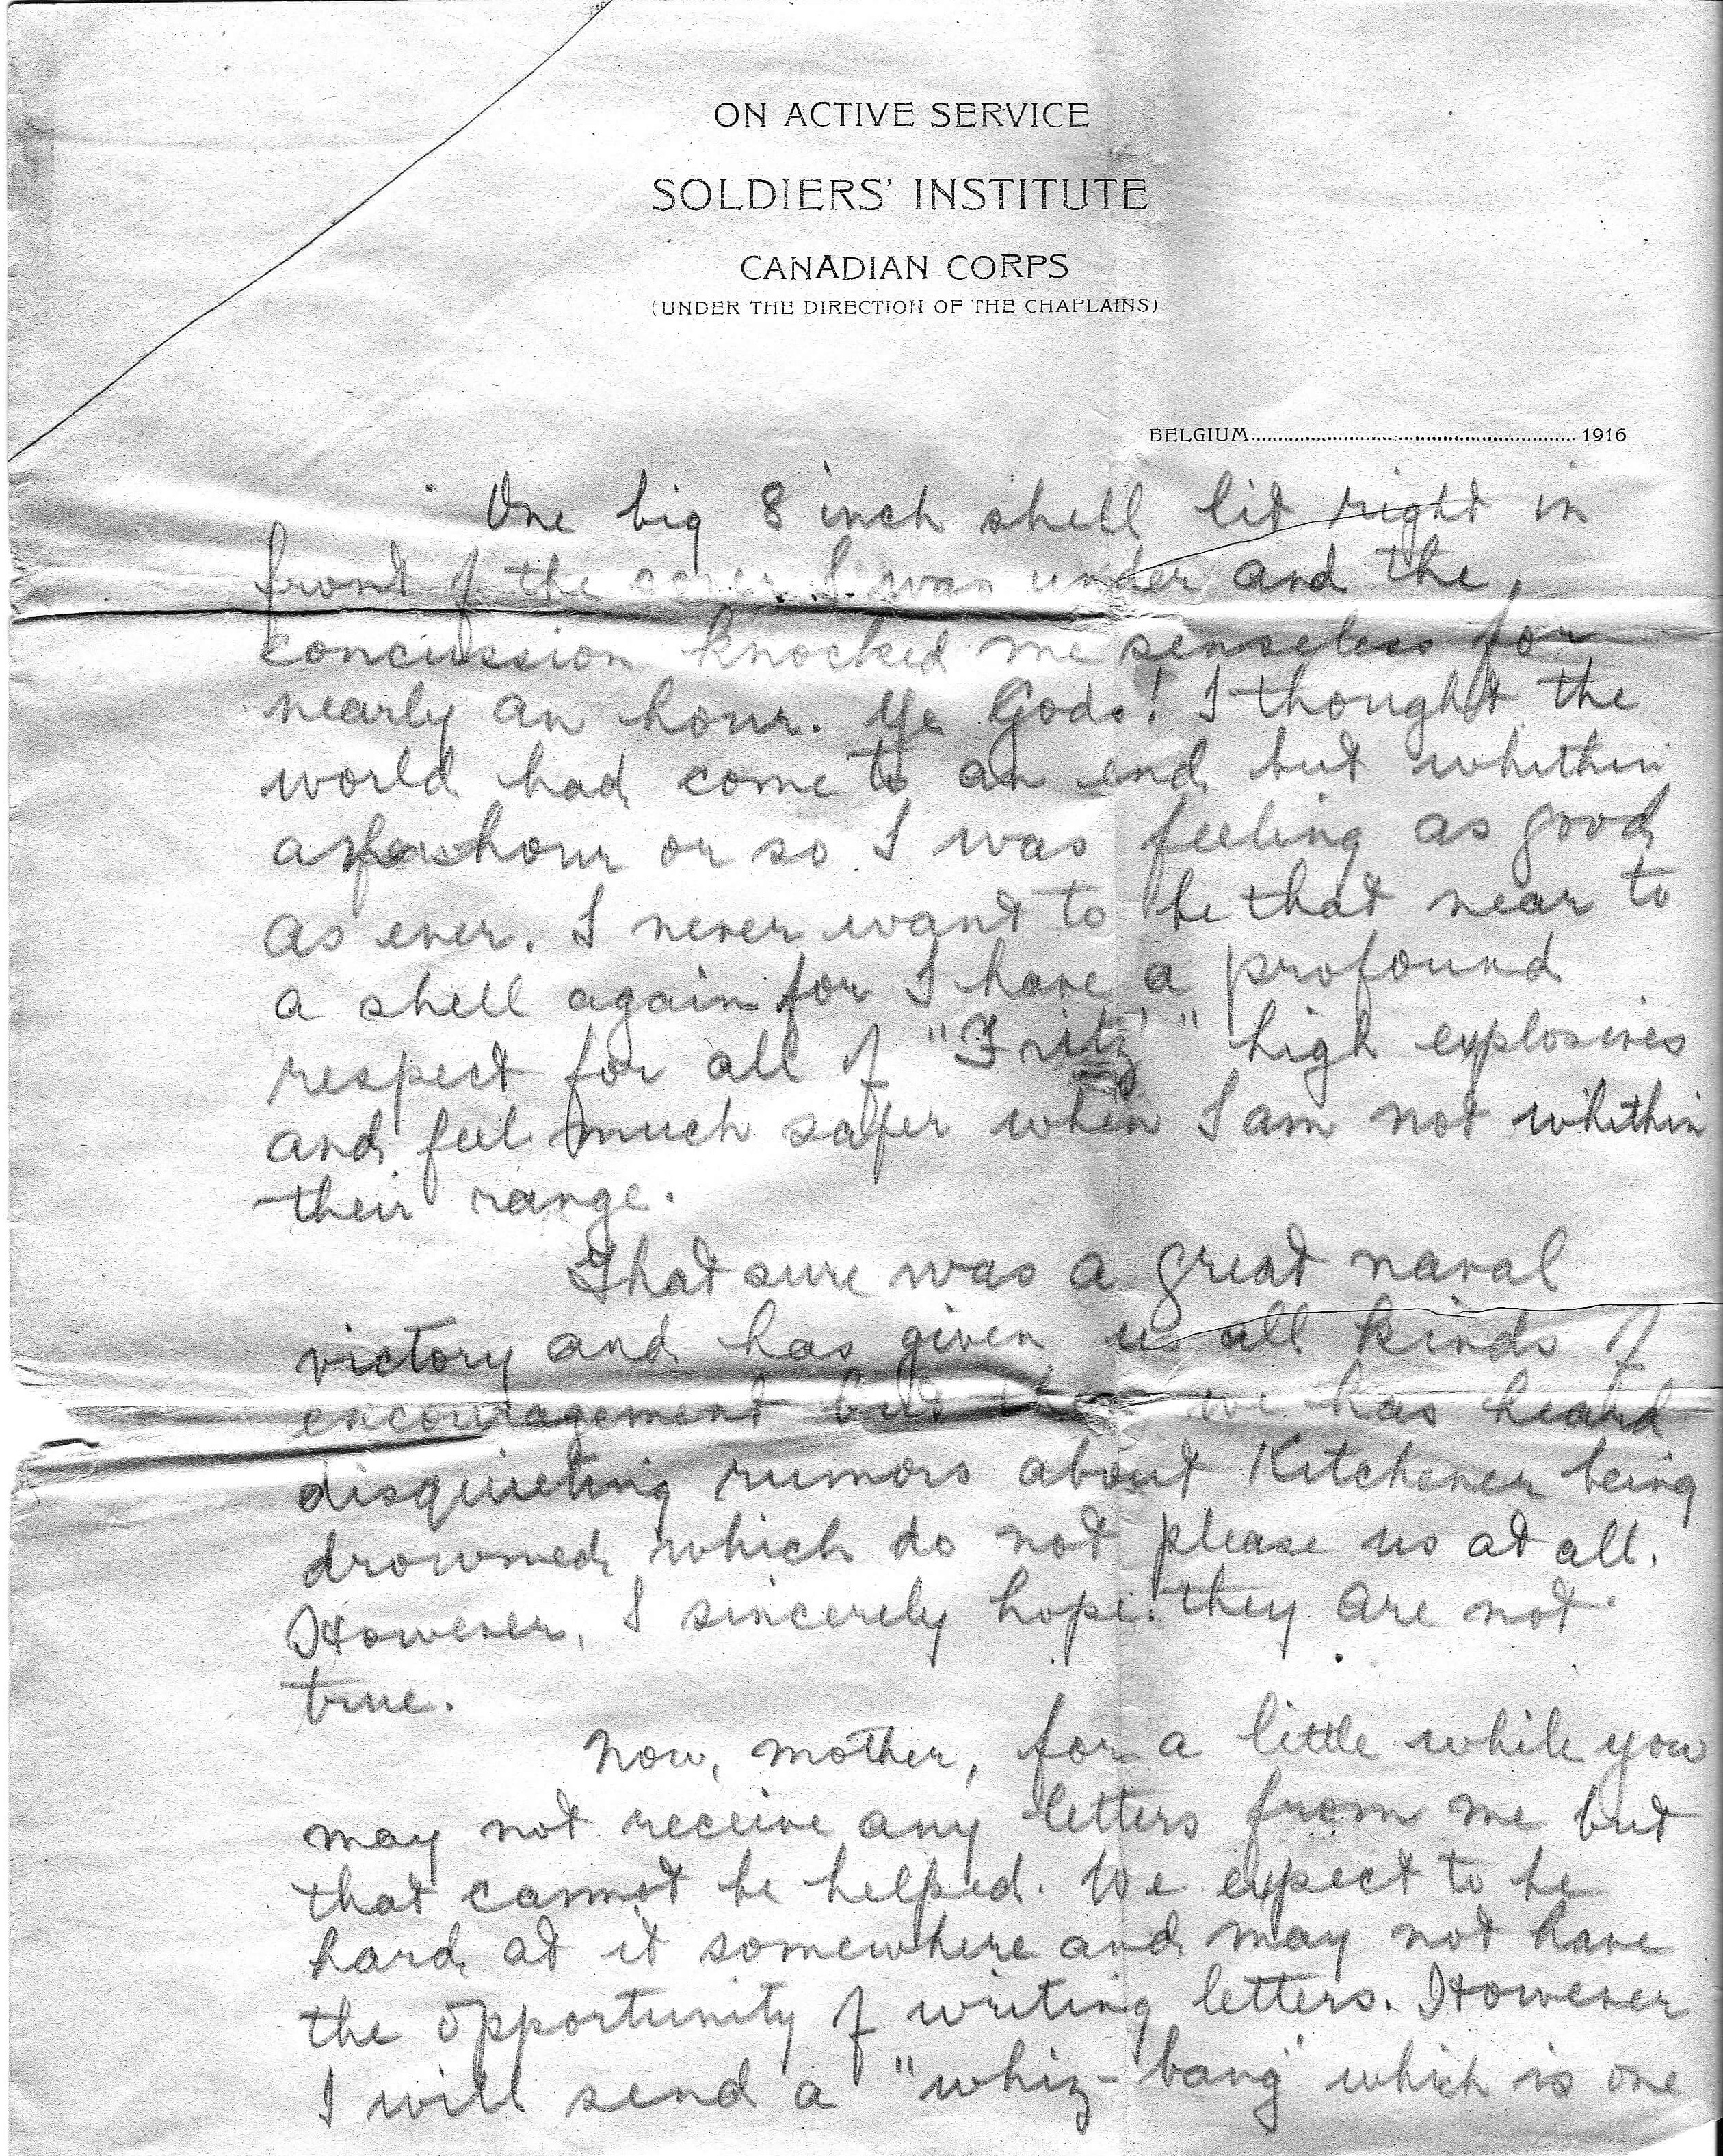 ON ACTIVE SERVICE
SOLDIERS' INSTITUTE
CANADIAN CORPS
(UNDER THE DIRECTION OF THE CHAPLAINS)
BELGIUM.......................................................... 1916
One big 8 inch shell lit right in
front of the cover I was under and the
concussion knocked me senseless for
nearly an hour. Ye Gods! I thought the
world had come to an end but whithin
an hour or so I was feeling as good
as ever. I never want to be that near to
a shell again for I have a profound
respect for all of "Fritz'" high explosives
and feel much safer when I am not whithin
their range.
That sure was a great naval
victory and has given us all kinds of
encouragement but then we has heard
disquieting rumors about Kitchener being
drowned which do not please us at all.
However, I sincerely hope they are not
true.
Now, mother, for a little while you
may not receive any letters from me but
that cannot be helped. We expect to be
hard at it somewhere and may not have
the opportunity of writing letters. However
I will send a "whiz-bang" which is one